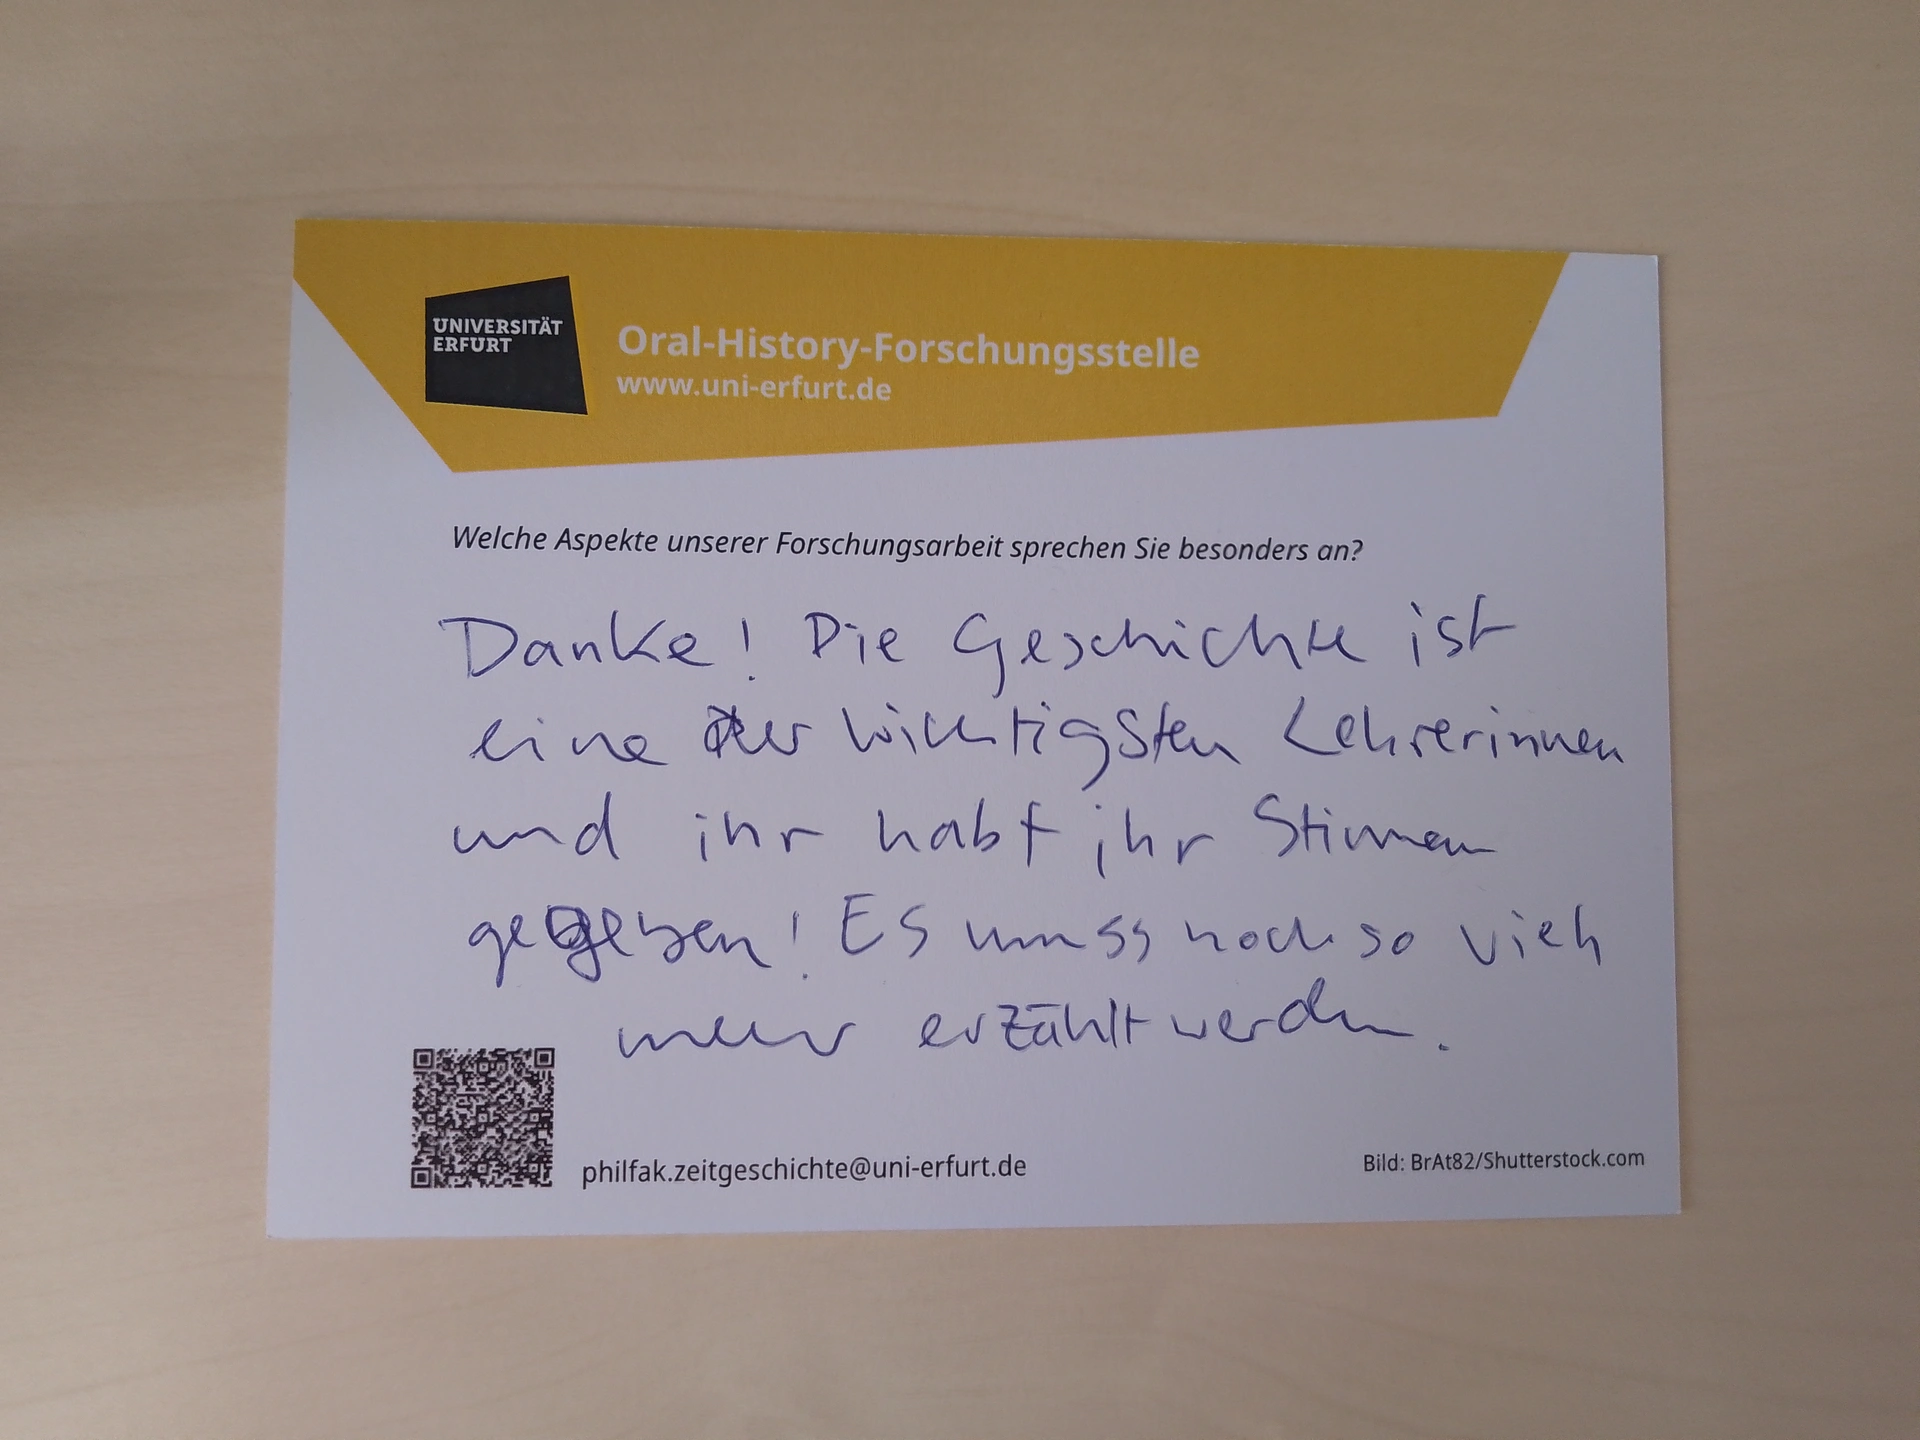 UNIVERSITÄT
ERFURT
Oral-History-Forschungsstelle
www.uni-erfurt.de
Welche Aspekte unserer Forschungsarbeit sprechen Sie besonders an?
Danke! Die Geschichte ist
eine der wichtigsten Lehrerinnen
und ihr habt ihr Stimmen
gegeben! Es muss noch so viel
mehr erzählt werden.
philfak.zeitgeschichte@uni-erfurt.de
Bild: BrAt82/Shutterstock.com